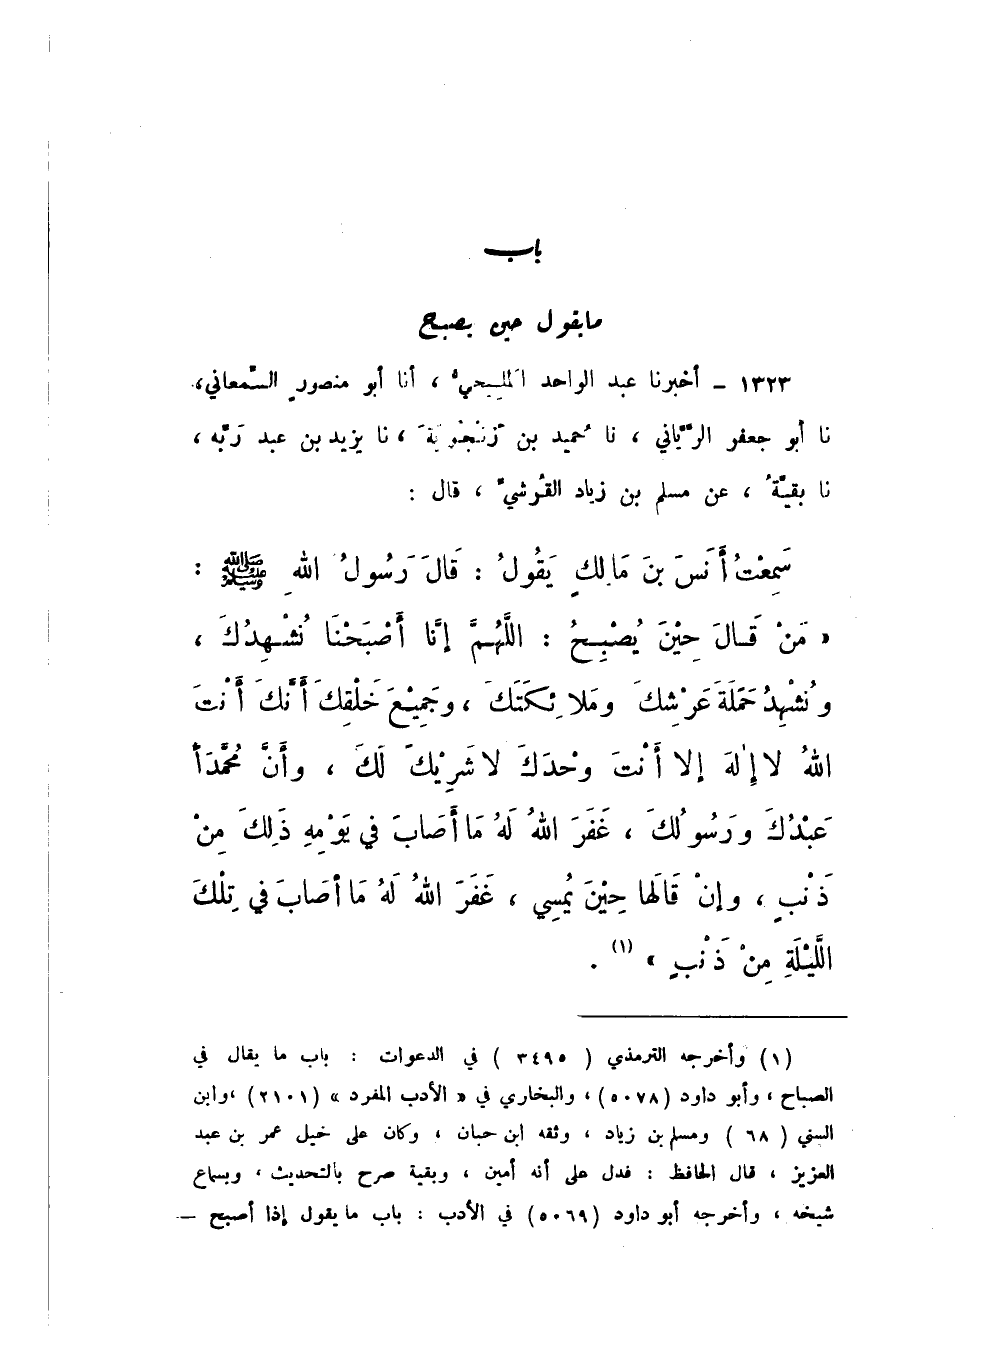 باب
ما يقول حين يصبح
١٣٢٣ – أخبرنا عبد الواحد المليحيُّ ، أنا أبو منصورٍ السَّمعاني ،
نا أبو جعفر الرَّيَّاني ، نا حُميد بن زَنْجُويَة ، نا يزيد بن عبد رَبِّه ،
نا بقيَّةُ ، عن مسلم بن زياد القُرشيِّ ، قال :
سَمِعْتُ أَنَسَ بنَ مَالِكٍ يَقُولُ : قَالَ رَسُولُ اللهِ ﷺ :
« مَنْ قَـالَ حِيْنَ يُصْبِـحُ : اللَّهُـمَّ إِنَّا أَصْبَحْنَا نُشْـهِدُكَ ،
ونُشْهِدُ حَمَلَةَ عَرْشِكَ ومَلائِكَتَكَ ، وجَمِيْعَ خَلْقِكَ أَنَّكَ أَنْتَ
اللهُ لا إِلٰهَ إِلا أَنْتَ وحْدَكَ لا شَرِيْكَ لَكَ ، وأَنَّ مُحَمَّدَاً
عَبْدُكَ ورَسُولُكَ ، غَفَرَ اللهُ لَهُ مَا أَصَابَ في يَوْمِهِ ذَلِكَ مِنْ
ذَنْبٍ ، وإنْ قَالَها حِيْنَ يُمْسِي ، غَفَرَ اللهُ لَهُ مَا أصَابَ في تِلْكَ
اللَّيْلَةِ مِنْ ذَنْبٍ » (١) .
(١) وأخرجه الترمذي ( ٣٤٩٥ ) في الدعوات : باب ما يقال في
الصباح ، وأبو داود (٥٠٧٨) ، والبخاري في « الأدب المفرد » (٢١٠١) ،وابن
السني ( ٦٨ ) ومسلم بن زياد ، وثقه ابن حبان ، وكان على خيل عمر بن عبد
العزيز ، قال الحافظ : فدل على أنه أمين ، وبقية صرح بالتحديث ، وبسماع
شيخه ، وأخرجه أبو داود (٥٠٦٩) في الأدب : باب ما يقول إذا أصبح –